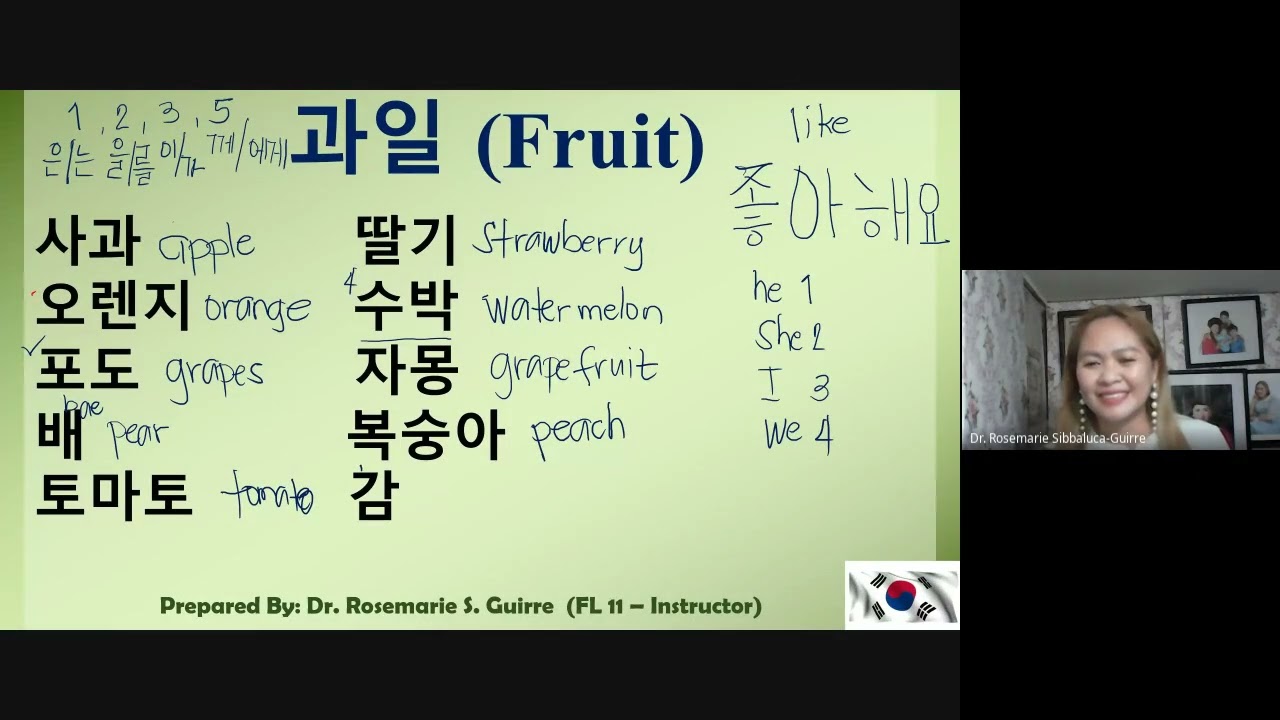 1 , 2 , 3 , 5
은/는 을/를 이/가 께/에게
과일 (Fruit)
like
좋아해요
사과 apple
딸기 Strawberry
오렌지 orange
4 수박 watermelon
포도 grapes
자몽 grapefruit
bae
배 pear
복숭아 peach
토마토 tomato
감
he 1
She 2
I 3
We 4
Prepared By: Dr. Rosemarie S. Guirre (FL 11 – Instructor)
Dr. Rosemarie Sibbaluca-Guirre